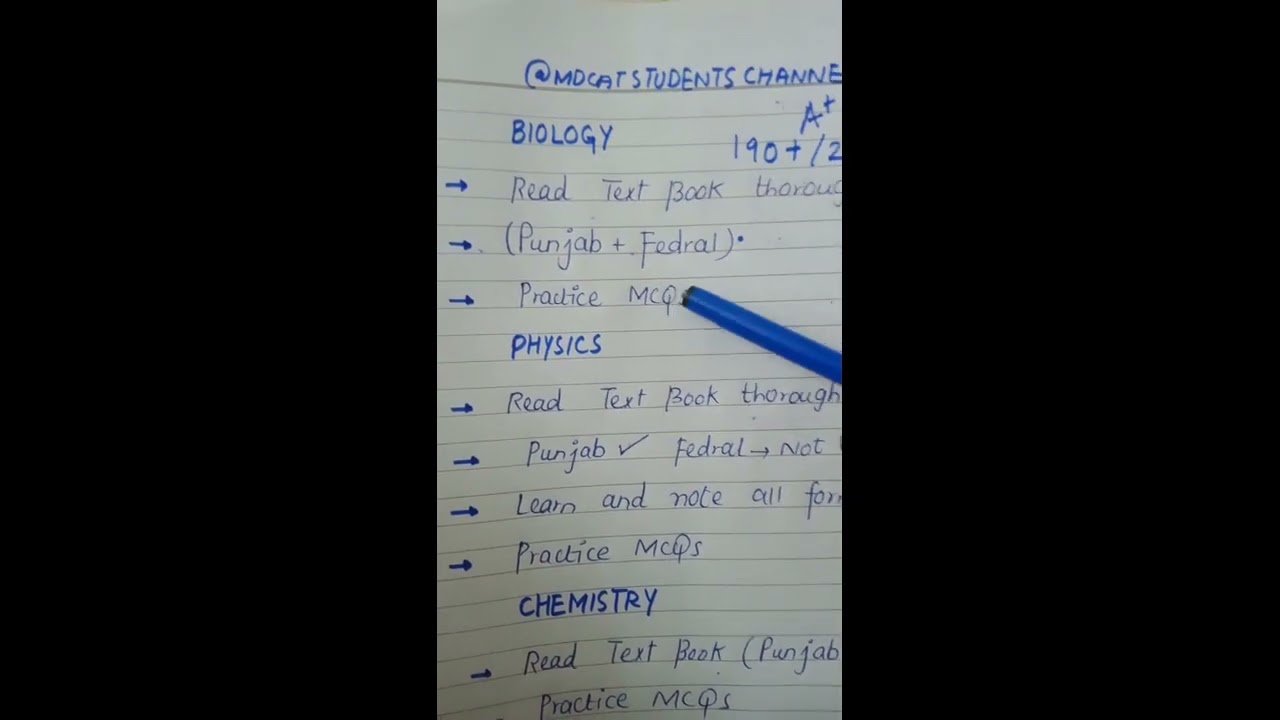 @MDCAT STUDENTS CHANNE
A+
BIOLOGY
190+/2
→ Read Text Book thoroug
→ (Punjab + Fedral).
→ Practice MCQ
PHYSICS
→ Read Text Book thorough
→ Punjab ✓ Fedral → Not
→ Learn and note all for
→ Practice MCQs
CHEMISTRY
→ Read Text Book (Punjab
Practice MCQs